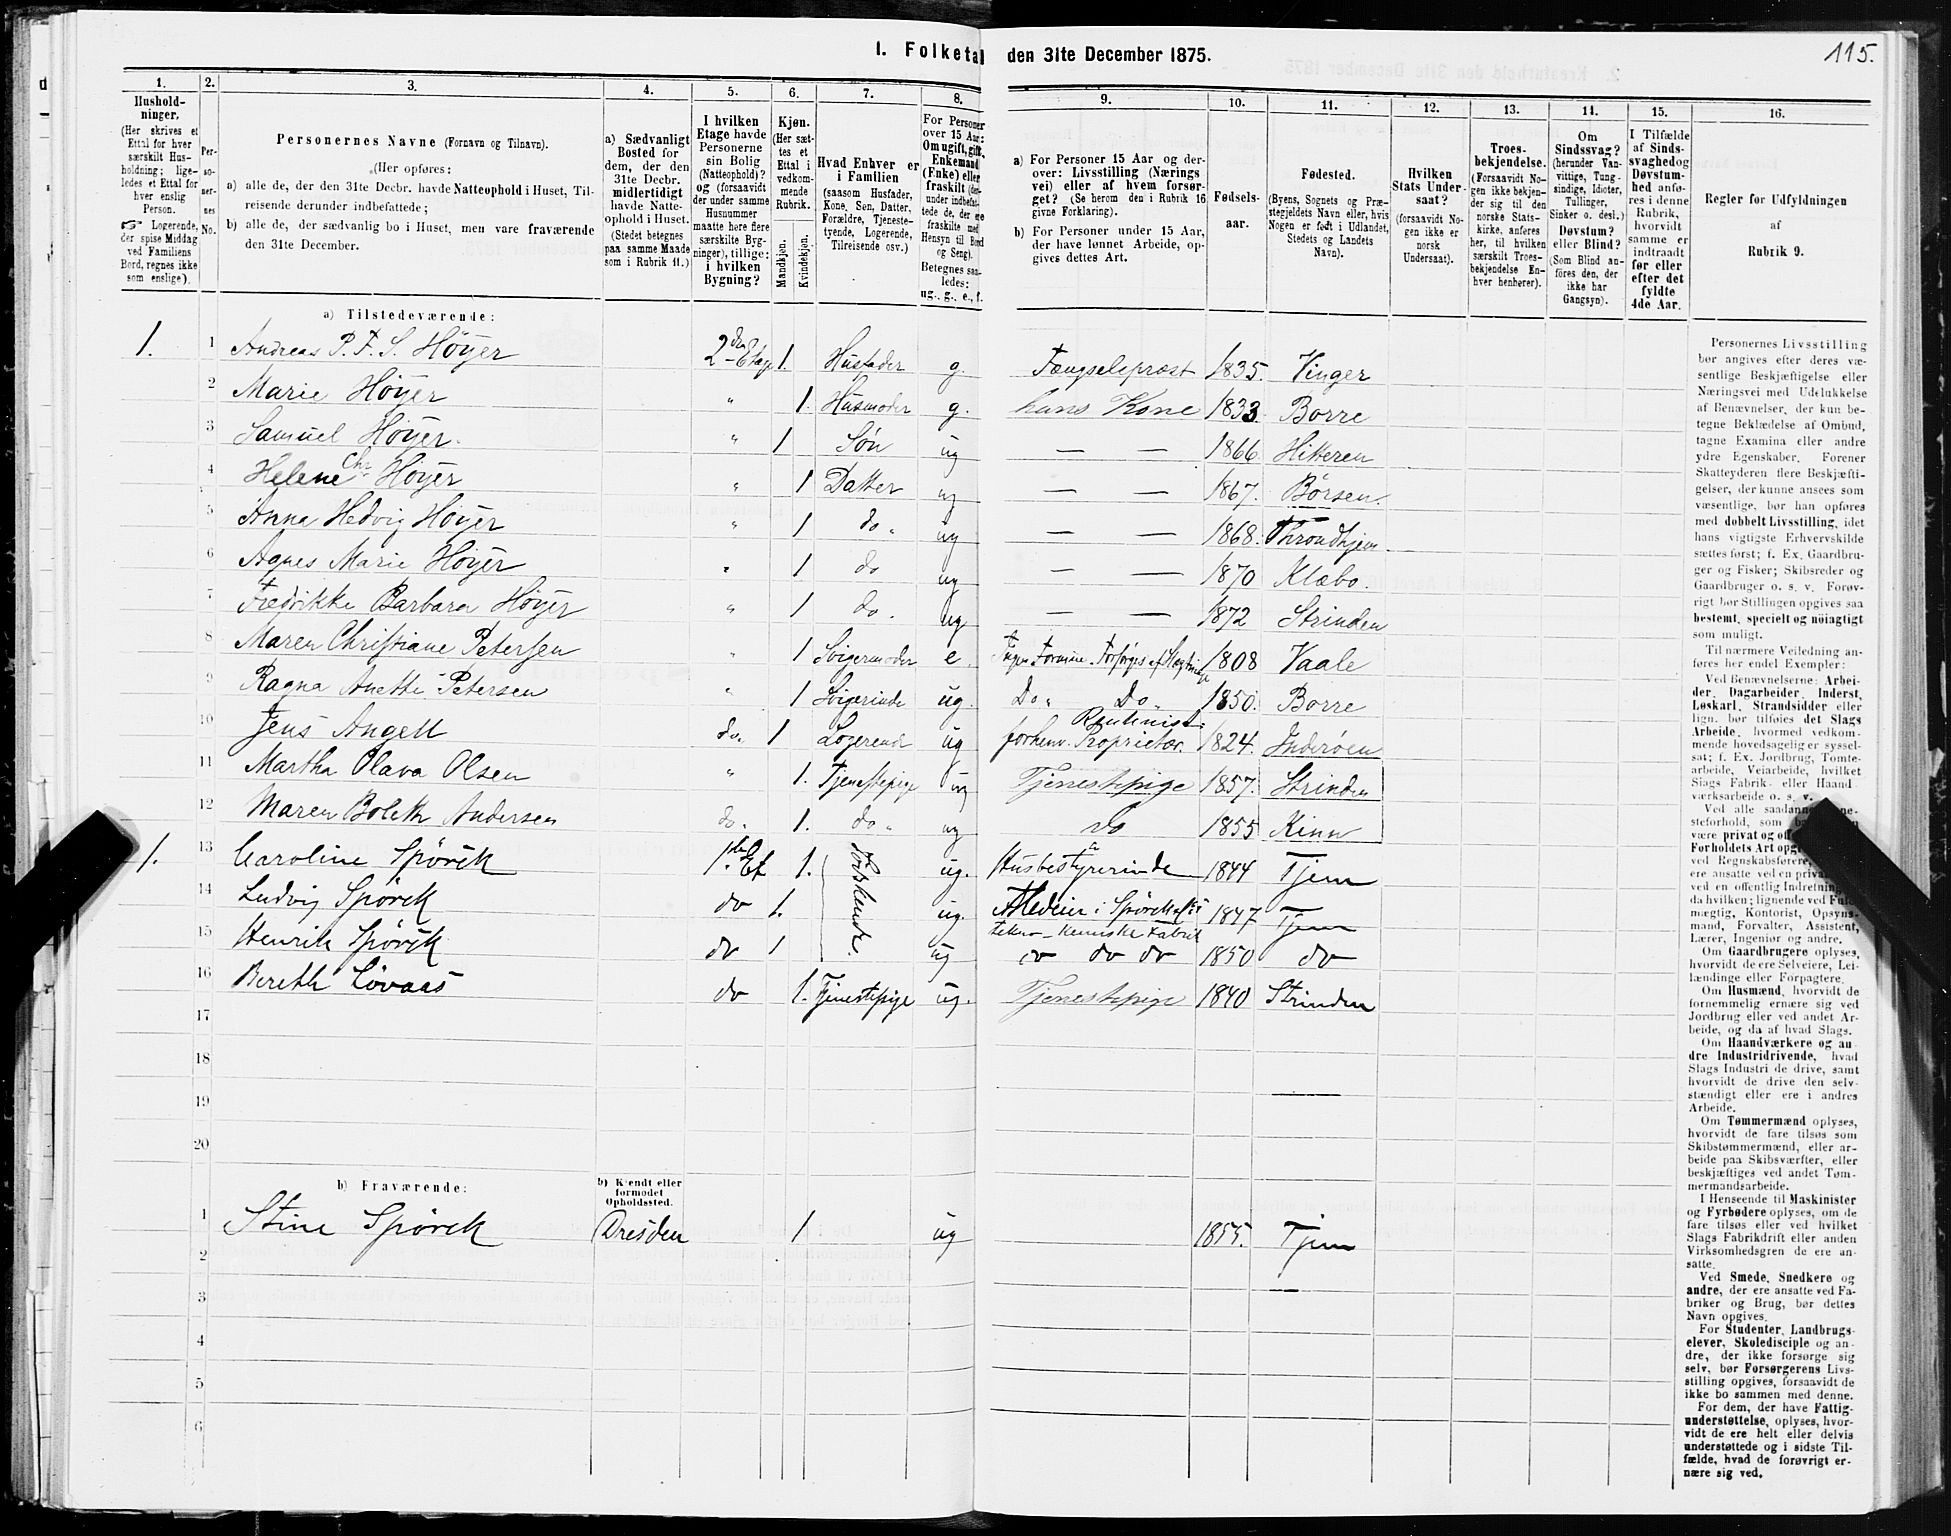 1. Folketal den 31te December 1875.
115.
1. 2. 3. 4. 5. 6. 7. 8. 9. 10. 11. 12. 13. 14. 15. 16.
Husholdninger.
(Her skrives et
Ettal for hver
særskilt Hus-
holdning; lige-
ledes et Ettal for
hver enslig
Person.
☞ Logerende,
der spise Middag
ved Familiens
Bord, regnes ikke
som enslige).
Per-
so-
ner-
nes
No.
Personernes Navne (Fornavn og Tilnavn).
(Her opføres:
a) alle de, der den 31te Decbr. havde Natteophold i Huset, Til-
reisende derunder indbefattede;
b) alle de, der sædvanlig bo i Huset, men vare fraværende
den 31te December.
a) Sædvanligt
Bosted for
dem, der den
31te Decbr.
midlertidigt
havde Natte-
ophold i Huset.
(Stedet betegnes
paa samme Maade
som i Rubrik 11.)
I hvilken
Etage havde
Personerne
sin Bolig
(Natteophold)?
og (forsaavidt
der under samme
Husnummer
maatte høre flere
særskilte Byg-
ninger), tillige:
i hvilken
Bygning?
Kjøn.
(Her sæt-
tes et
Ettal i
vedkom-
mende
Rubrik.
Mandkjøn.
Kvindekjøn.
Hvad Enhver er
i Familien
(saasom Husfader,
Kone, Søn, Datter,
Forældre, Tjeneste-
tyende, Logerende,
Tilreisende osv.)
For Personer
over 15 Aar:
Om ugift, gift,
Enkemand
(Enke) eller
fraskilt (der-
under indbefat-
tede de, der ere
fraskilte med
Hensyn til Bord
og Seng).
Betegnes saa-
ledes:
ug., g., e., f.
a) For Personer 15 Aar og der-
over: Livsstilling (Nærings
vei) eller af hvem forsør-
get? (Se herom den i Rubrik 16
givne Forklaring).
b) For Personer under 15 Aar,
der have lønnet Arbeide, op-
gives dettes Art.
Fødsels-
aar.
Fødested.
(Byens, Sognets og Præ-
stegjeldets Navn eller, hvis
Nogen er født i Udlandet,
Stedets og Landets
Navn).
Hvilken
Stats Under-
saat?
(forsaavidt No-
gen ikke er
norsk
Undersaat).
Troes-
bekjendelse.
(Forsaavidt No-
gen ikke bekjen-
der sig til den
norske Stats-
kirke, anføres
her, til hvilken
særskilt Troes-
bekjendelse En-
hver henhører).
Om
Sindssvag?
(herunder Van-
vittige, Tung-
sindige, Idioter,
Tullinger,
Sinker o. desl.)
Døvstum?
eller Blind?
(Som Blind an-
føres den, der
ikke har
Gangsyn).
I Tilfælde
af Sinds-
svaghed og
Døvstum-
hed anfø-
res i denne
Rubrik,
hvorvidt
samme er
indtraadt
før eller
efter det
fyldte
4de Aar.
Regler for Udfyldningen
af
Rubrik 9.
a) Tilstedeværende:
1. 1 Andreas P. F. S. Höÿer 2den Etage 1. Husfader g. Fængselsprest 1835. Vinger
2 Marie Höÿer " 1. Husmoder g. hans Kone 1833 Borre
3 Samuel Höÿer. " 1 Søn ug — — 1866 Hitteren
4 Helene Chr Höÿer " 1 Datter ug — — 1867. Børsen.
5 Anna Hedvig Höÿer " 1 do " ug — — 1868. Throndhjem.
6 Agnes Marie Höÿer " 1 do ug — — 1870 Klæbo.
7 Fredrikke Barbara Höÿer " 1 do. ug — — 1872 Strinden
8 Maren Christiane Petersen " 1 Svigermoder e. Ingen Formue. Forsørges af 1808 Vaale
9 Ragna Anette Petersen " 1 Svigerinde ug. Do " Do " 1850. Borre
10 Jens Angell do. 1 Logerende ug Rentenist. forhenv. Proprietær. 1824. Inderøen
11 Martha Olava Olsen " 1. Tjenestepige ug Tjenestepige 1857. Strinden
12 Maren Boleth Andersen do. 1. do " ug do 1855 Kinn
1. 13 Caroline Spörck 1ste Et 1. Södskende. ug. Husbestyrerinde 1844 Tjem
14 Ludvig Spörck do 1. ug. Medeier i Spörck's 1847 Tjem
tekno-kemiske Fabrik
15 Henrik Spörck do 1 ug do do do 1850 do
16 Bereth Lövaas do 1. Tjenestepige ug. Tjenestepige 1840 Strinden
17
18
19
20
b) Fraværende:
b) Kjendt eller
formodet
Opholdssted.
1 Stine Spörck Dresden 1 ug 1855. Tjem
2
3
4
5
6
Personernes Livsstilling
bør angives efter deres væ-
sentlige Beskjæftigelse eller
Næringsvei med Udelukkelse
af Benævnelser, der kun be-
tegne Beklædelse af Ombud,
tagne Examina eller andre
ydre Egenskaber. Forener
Skatteyderen flere Beskjæfti-
gelser, der kunne ansees som
væsentlige, bør han opføres
med dobbelt Livsstilling, idet
hans vigtigste Erhvervskilde
sættes først; f. Ex. Gaardbru-
ger og Fisker; Skibsreder og
Gaardbruger o. s. v. Forøv-
rigt bør Stillingen opgives saa
bestemt, specielt og nøiagtigt
som muligt.
Til nærmere Veiledning an-
føres her endel Exempler:
Ved Benævnelserne: Arbei-
der, Dagarbeider, Inderst,
Løskarl, Strandsidder eller
lign. bør tilføies det Slags
Arbeide, hvormed vedkom-
mende hovedsagelig er syssel-
sat; f. Ex. Jordbrug, Tomte-
arbeide, Veiarbeide, hvilket
Slags Fabrik- eller Haand-
værksarbeide o. s. v.
Ved alle saadanne
steforhold, som
være privat og
Forholdets Art
ved Regnskabsførere,
ere ansatte ved en
ved en offentlig Indretning
da hvilken; lignende ved
mægtig, Kontorist, Opsyns-
mand, Forvalter, Assistent,
Lærer, Ingeniør og andre.
Om Gaardbrugere oplyses,
hvorvidt de ere Selveiere, Lei-
lændinge eller Forpagtere.
Om Husmænd, hvorvidt de
fornemmelig ernære sig ved
Jordbrug eller ved andet Ar-
beide, og da af hvad Slags.
Om Haandværkere og an-
dre Industridrivende, hvad
Slags Industri de drive, samt
hvorvidt de drive den selv-
stændigt eller ere i andres
Arbeide.
Om Tømmermænd oplyses,
hvorvidt de fare tilsøs som
Skibstømmermænd, eller ar-
beide paa Skibsværfter, eller
beskjæftiges ved andet Tøm-
mermandsarbeide.
I Henseende til Maskinister
og Fyrbødere oplyses, om de
fare tilsøs eller ved hvilket
Slags Fabrikdrift eller anden
Virksomhedsgren de ere an-
satte.
Ved Smede, Snedkere og
andre, der ere ansatte ved Fa-
briker og Brug, bør dettes
Navn opgives.
For Studenter, Landbrugs-
elever, Skoledisciple og an-
dre, der ikke forsørge sig
selv, bør Forsørgerens Livs-
stilling opgives, forsaavidt de
ikke bo sammen med denne.
For dem, der have Fattig-
understøttelse, oplyses, hvor-
vidt de ere helt eller delvis
understøttede og i sidste Til-
fælde, hvad de forøvrigt er-
nære sig ved.